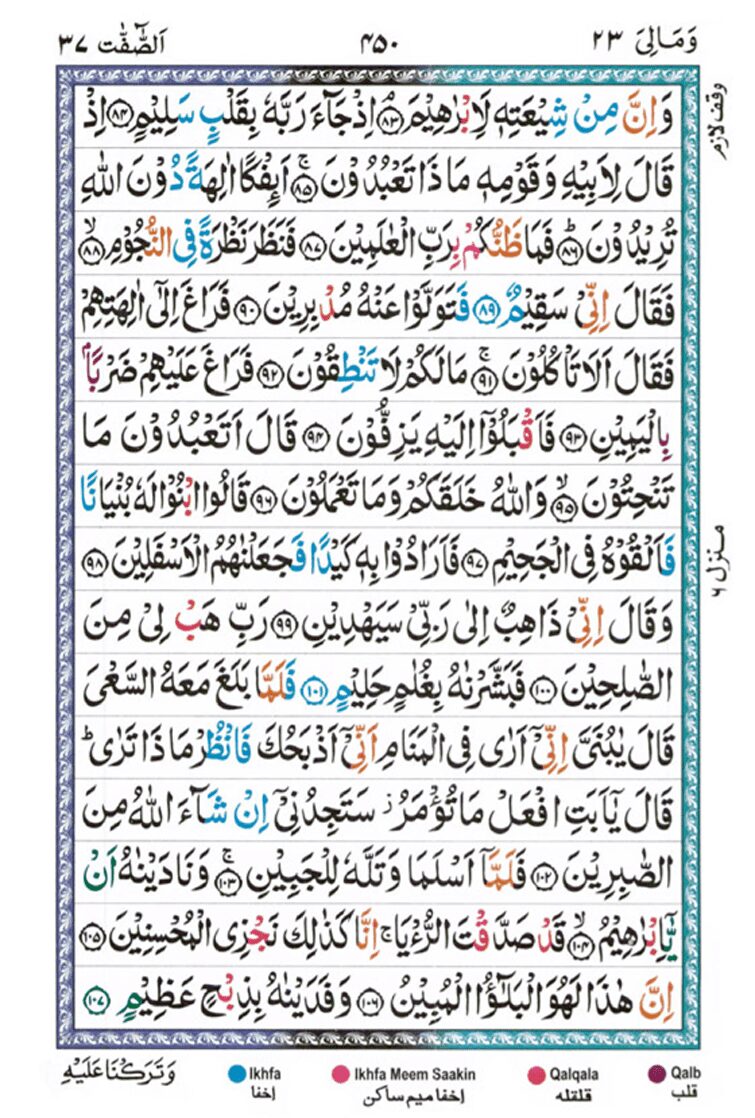 وَمَالِیَ ٢٣
٤٥٠
اَلصّٰٓفّٰت ٣٧
وقف لازم
وَاِنَّ مِنْ شِيْعَتِهٖ لَاِبْرٰهِيْمَ ۘ﴿٨٣﴾ اِذْ جَآءَ رَبَّهٗ بِقَلْبٍ سَلِيْمٍ ﴿٨٤﴾ اِذْ
قَالَ لِاَبِيْهِ وَقَوْمِهٖ مَاذَا تَعْبُدُوْنَ ۚ﴿٨٥﴾ اَئِفْكًا اٰلِهَةً دُوْنَ اللّٰهِ
تُرِيْدُوْنَ ؕ﴿٨٦﴾ فَمَا ظَنُّكُمْ بِرَبِّ الْعٰلَمِيْنَ ﴿٨٧﴾ فَنَظَرَ نَظْرَةً فِى النُّجُوْمِ ۙ﴿٨٨﴾
فَقَالَ اِنِّىْ سَقِيْمٌ ﴿٨٩﴾ فَتَوَلَّوْا عَنْهُ مُدْبِرِيْنَ ﴿٩٠﴾ فَرَاغَ اِلٰٓى اٰلِهَتِهِمْ
فَقَالَ اَلَا تَاْكُلُوْنَ ۚ﴿٩١﴾ مَا لَكُمْ لَا تَنْطِقُوْنَ ﴿٩٢﴾ فَرَاغَ عَلَيْهِمْ ضَرْبًۢا
بِالْيَمِيْنِ ﴿٩٣﴾ فَاَقْبَلُوْۤا اِلَيْهِ يَزِفُّوْنَ ﴿٩٤﴾ قَالَ اَتَعْبُدُوْنَ مَا
تَنْحِتُوْنَ ۙ﴿٩٥﴾ وَاللّٰهُ خَلَقَكُمْ وَمَا تَعْمَلُوْنَ ﴿٩٦﴾ قَالُوا ابْنُوْا لَهٗ بُنْيَانًا
فَاَلْقُوْهُ فِى الْجَحِيْمِ ﴿٩٧﴾ فَاَرَادُوْا بِهٖ كَيْدًا فَجَعَلْنٰهُمُ الْاَسْفَلِيْنَ ﴿٩٨﴾
منزل ٦
وَقَالَ اِنِّىْ ذَاهِبٌ اِلٰى رَبِّىْ سَيَهْدِيْنِ ﴿٩٩﴾ رَبِّ هَبْ لِىْ مِنَ
الصّٰلِحِيْنَ ﴿١٠٠﴾ فَبَشَّرْنٰهُ بِغُلٰمٍ حَلِيْمٍ ﴿١٠١﴾ فَلَمَّا بَلَغَ مَعَهُ السَّعْىَ
قَالَ يٰبُنَىَّ اِنِّىْۤ اَرٰى فِى الْمَنَامِ اَنِّىْۤ اَذْبَحُكَ فَانْظُرْ مَاذَا تَرٰى ؕ
قَالَ يٰۤاَبَتِ افْعَلْ مَا تُؤْمَرُ ؗ سَتَجِدُنِىْۤ اِنْ شَآءَ اللّٰهُ مِنَ
الصّٰبِرِيْنَ ﴿١٠٢﴾ فَلَمَّاۤ اَسْلَمَا وَتَلَّهٗ لِلْجَبِيْنِ ۚ﴿١٠٣﴾ وَنَادَيْنٰهُ اَنْ
يّٰۤاِبْرٰهِيْمُ ۙ﴿١٠٤﴾ قَدْ صَدَّقْتَ الرُّءْيَا ۚ اِنَّا كَذٰلِكَ نَجْزِى الْمُحْسِنِيْنَ ﴿١٠٥﴾
اِنَّ هٰذَا لَهُوَ الْبَلٰٓؤُا الْمُبِيْنُ ﴿١٠٦﴾ وَفَدَيْنٰهُ بِذِبْحٍ عَظِيْمٍ ﴿١٠٧﴾
وَتَرَكْنَا عَلَيْهِ
Ikhfa
اِخفا
Ikhfa Meem Saakin
اِخفا میم ساکن
Qalqala
قلقله
Qalb
قلب